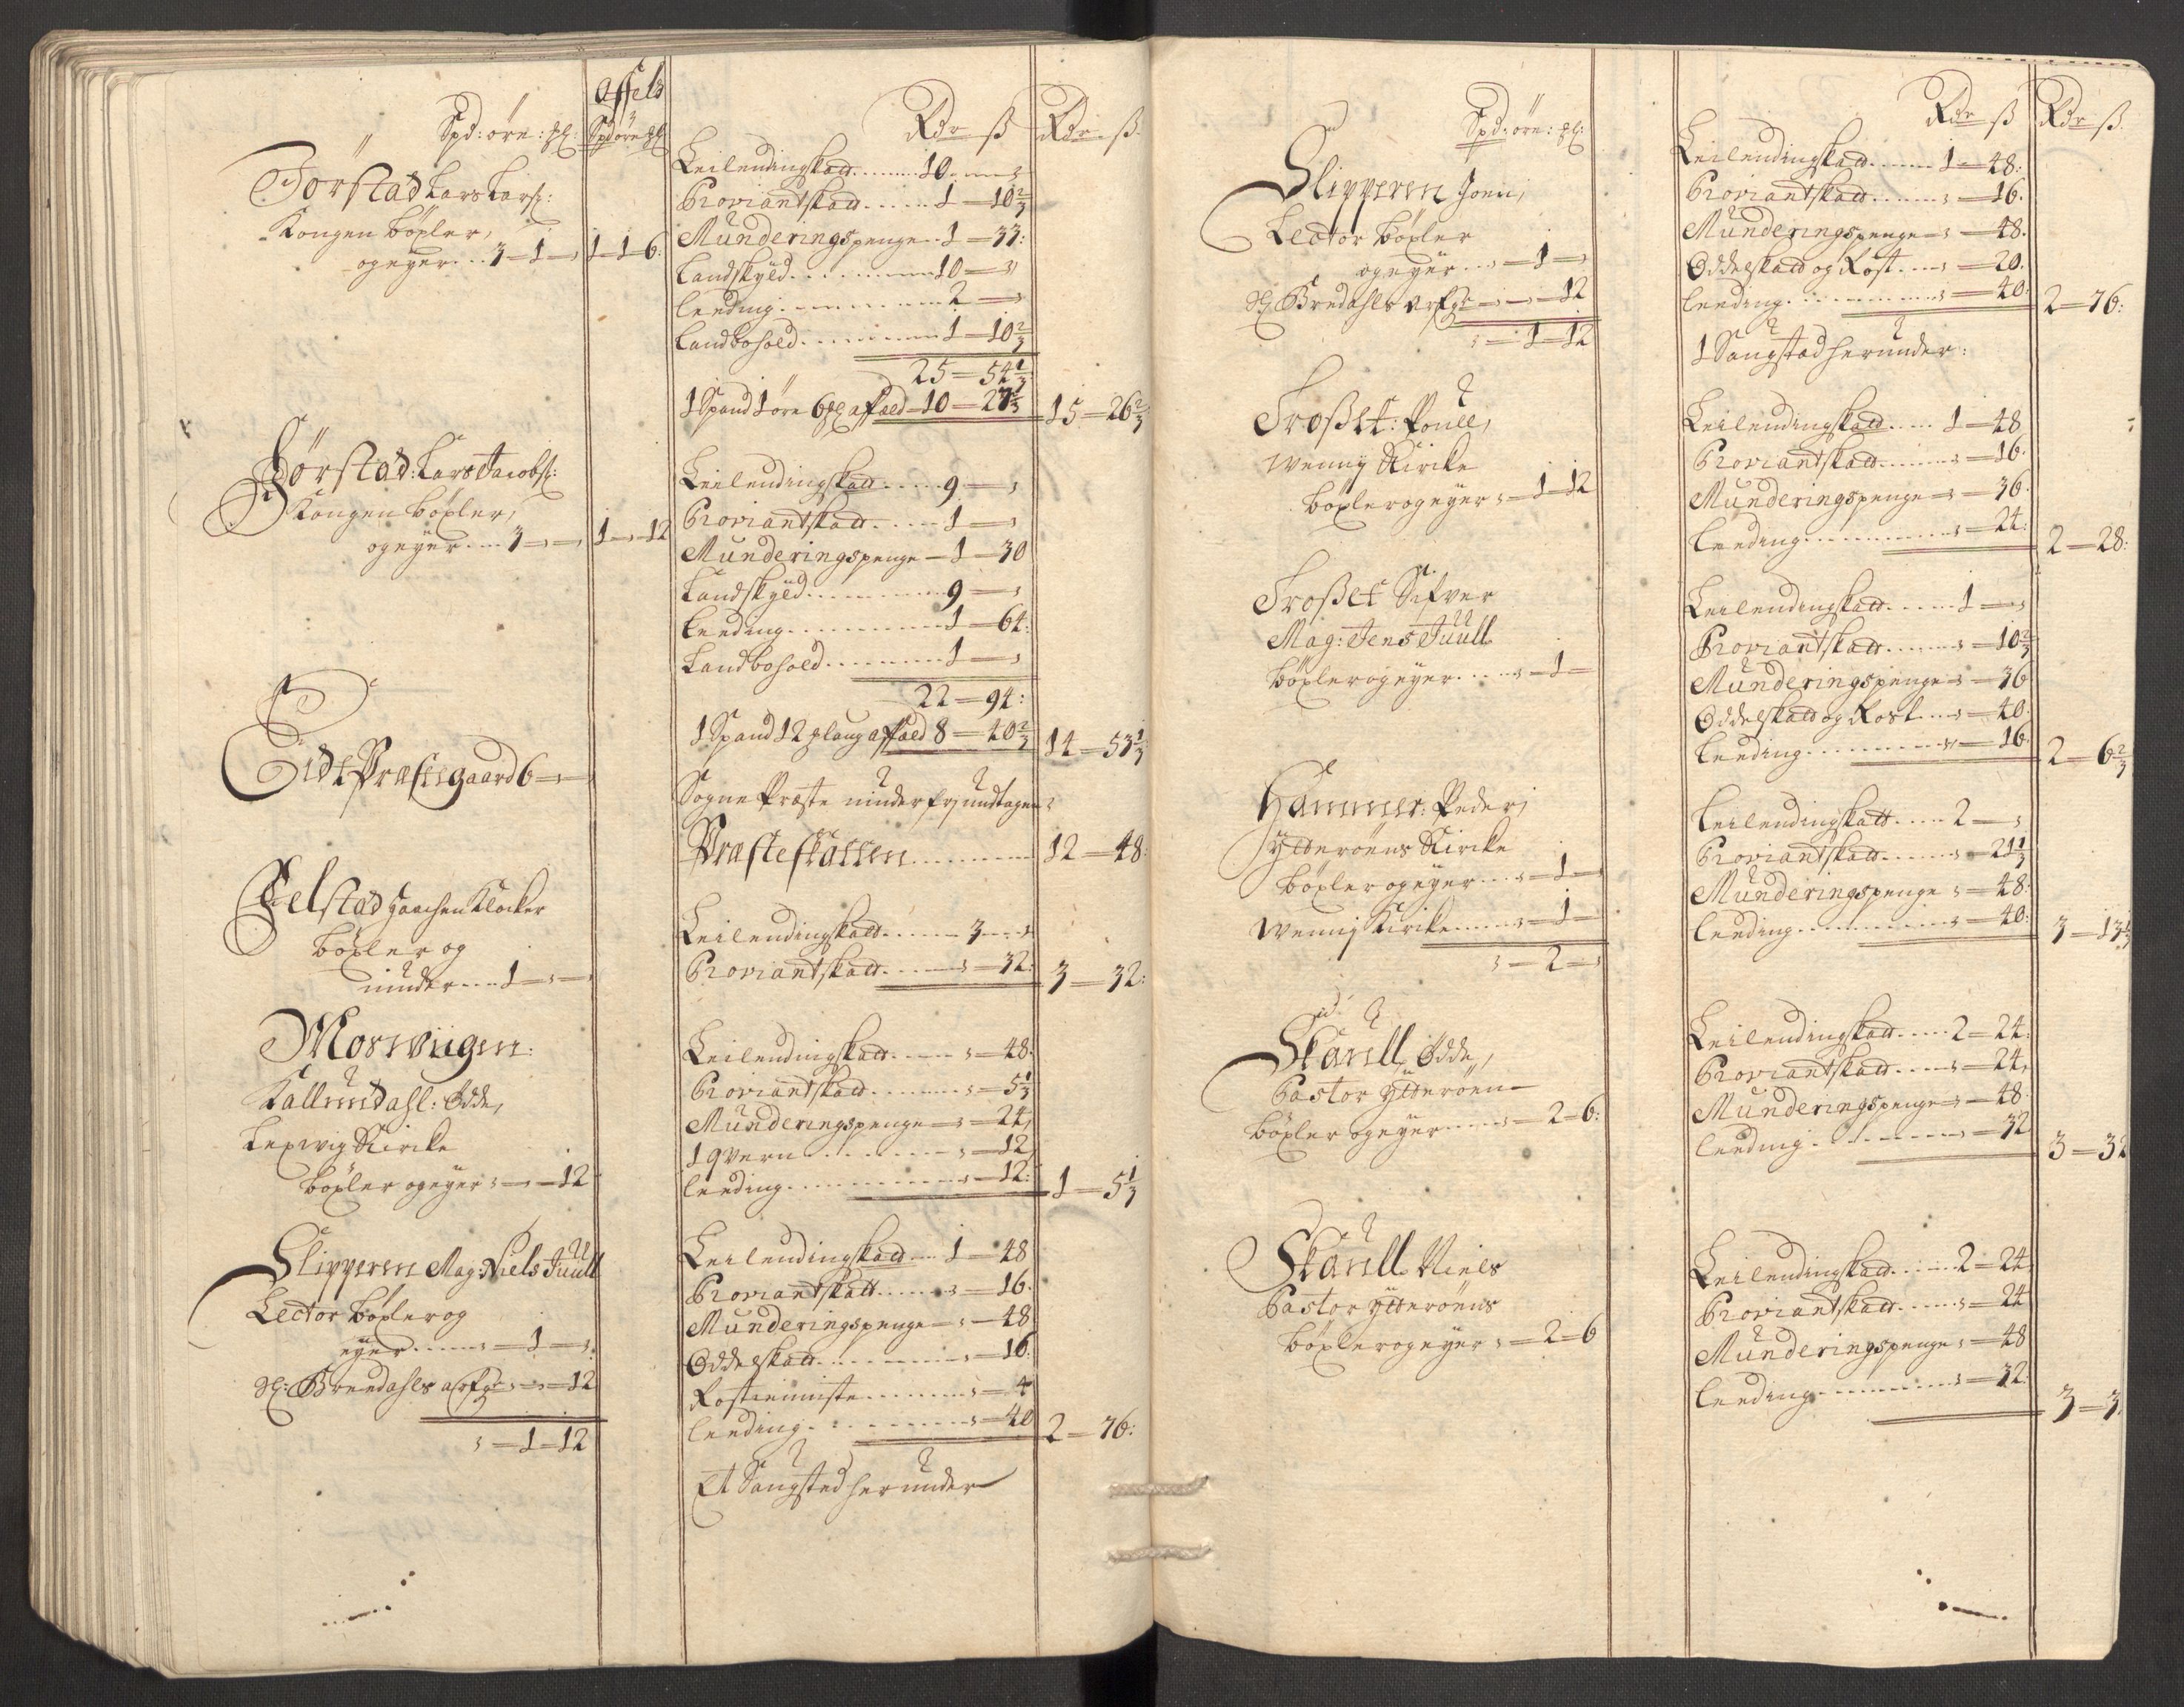 Affeld
Spd: öre: pl: Spd öre pl
Rdr ß Rdr ß
Förstad Lars Lars:
Kongen böxler,
og eyer 3 – 1 – 1 – 1 – 6
Leilendingskatt 10 –
Proviantskatt 1 – 10 2/3
Munderingspenge 1 – 33:
Landskyld 10 –
Leeding 2 –
Landbohold 1 – 10 2/3
25 – 54 1/3
1 Spand 1 öre 6 pl affald – 10 – 27 2/3 15 – 26 2/3
Förstad: Lars Jacobs:
Kongen böxler,
og eyer 3 – – 1 – 12
Leilendingskatt 9 –
Proviantskatt 1 –
Munderingspenge – 1 – 30
Landskyld 9 –
Leeding 1 – 64:
Landbohold 1 –
22 – 94:
1 Spand 12 plaug affald 8 – 40 2/3 14 – 53 1/3
Eide Præstegaard 6 – –
Sogne Præste
Præsteskatten 12 – 48:
Felstad Klocker
böxler og
1 – –
Leilendingskatt 3 –
Proviantskatt – 32: 3 – 32:
Moswiigen:
Kallundahl: Odde,
Lexwig Kircke
böxler og eyer – – 12
Leilendingskatt – 48.
Proviantskatt – 5 1/3
Munderingspenge – 24,
1 qvern – 12
Leeding – 12: 1 – 5 1/3
Slipperen Mag: Niels Juull
Lector böxler og
eyer – 1 –
Sl: Bredahls arfg – – 12
– 1 – 12
Leilendingskatt 1 – 48
Proviantskatt – 16.
Munderingspenge – 48
Oddelskatt – 16
Rostieniste – 4
Leeding – 40 2 – 76:
Et Saugsted herunder
Spd: öre: pl:
Rdr ß Rdr ß
Slipperen Joen,
Lector böxler
og eyer – 1 –
Sl Bredahls arfg – – 12
– 1 – 12
Leilendingskatt 1 – 48:
Proviantskatt – 16.
Munderingspenge – 48.
Oddelskatt og Rost – 20.
Leeding – 40: 2 – 76:
1 Saugstad herunder:
Troßet: Pouel,
Wennig Kircke
böxler og eyer – 1 – 12
Leilendingskatt 1 – 48
Proviantskatt – 16.
Munderingspenge – 36.
Leeding – 24: 2 – 28:
Troßet Sifver
Mag: Jens Juull
böxler og eyer – 1 –
Leilendingskatt 1 –
Proviantskatt – 10 2/3
Munderingspenge – 36
Oddelskatt og Rost – 40.
Leeding – 16 2 – 6 2/3
Hammer: Peder,
Ytterøens Kircke
böxler og eyer – 1 –
Wennig Kircke – 1 –
– 2 –
Leilendingskatt 2 –
Proviantskatt – 21 1/3
Munderingspenge – 48:
Leeding – 40: 3 – 13 1/3
Skaull, Odde,
Pastor Ytterøen
böxler og eyer – 2 – 6:
Leilendingskatt 2 – 24:
Proviantskatt – 24,
Munderingspenge – 48.
Leeding – 32 3 – 32
Skaull Niels
Pastor Ytterøens
böxler og eyer – 2 – 6
Leilendingskatt 2 – 24
Proviantskatt – 24
Munderingspenge – 48
Leeding – 32: 3 – 3